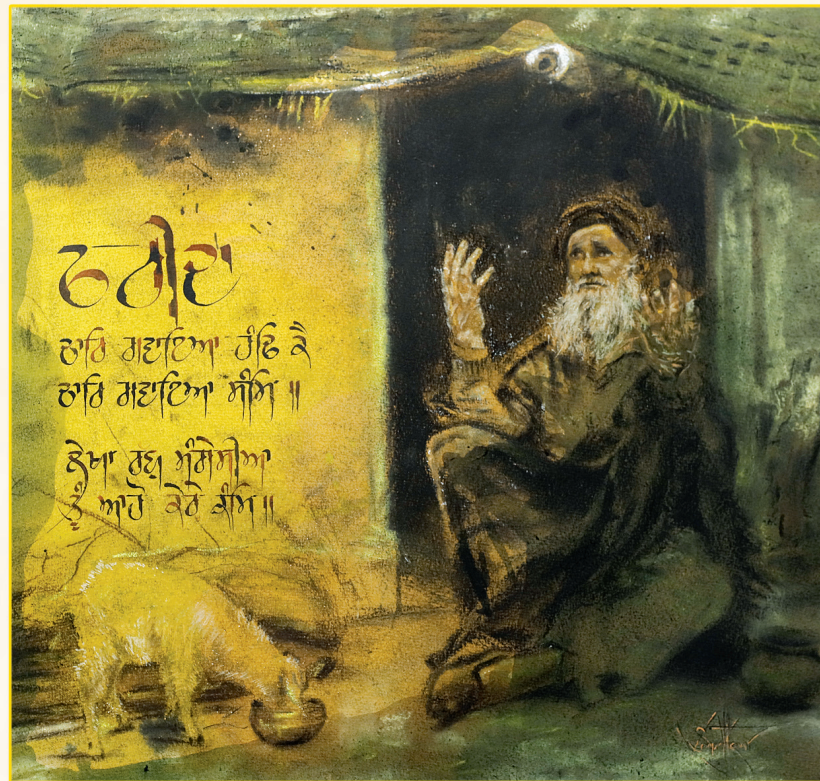 ਫਰੀਦਾ
ਚਾਰਿ ਗਵਾਇਆ ਹੰਢਿ ਕੈ
ਚਾਰਿ ਗਵਾਇਆ ਸੰਮਿ ॥
ਲੇਖਾ ਰਬੁ ਮੰਗੇਸੀਆ
ਤੂੰ ਆਂਹੋ ਕੇਰੇ ਕੰਮਿ ॥